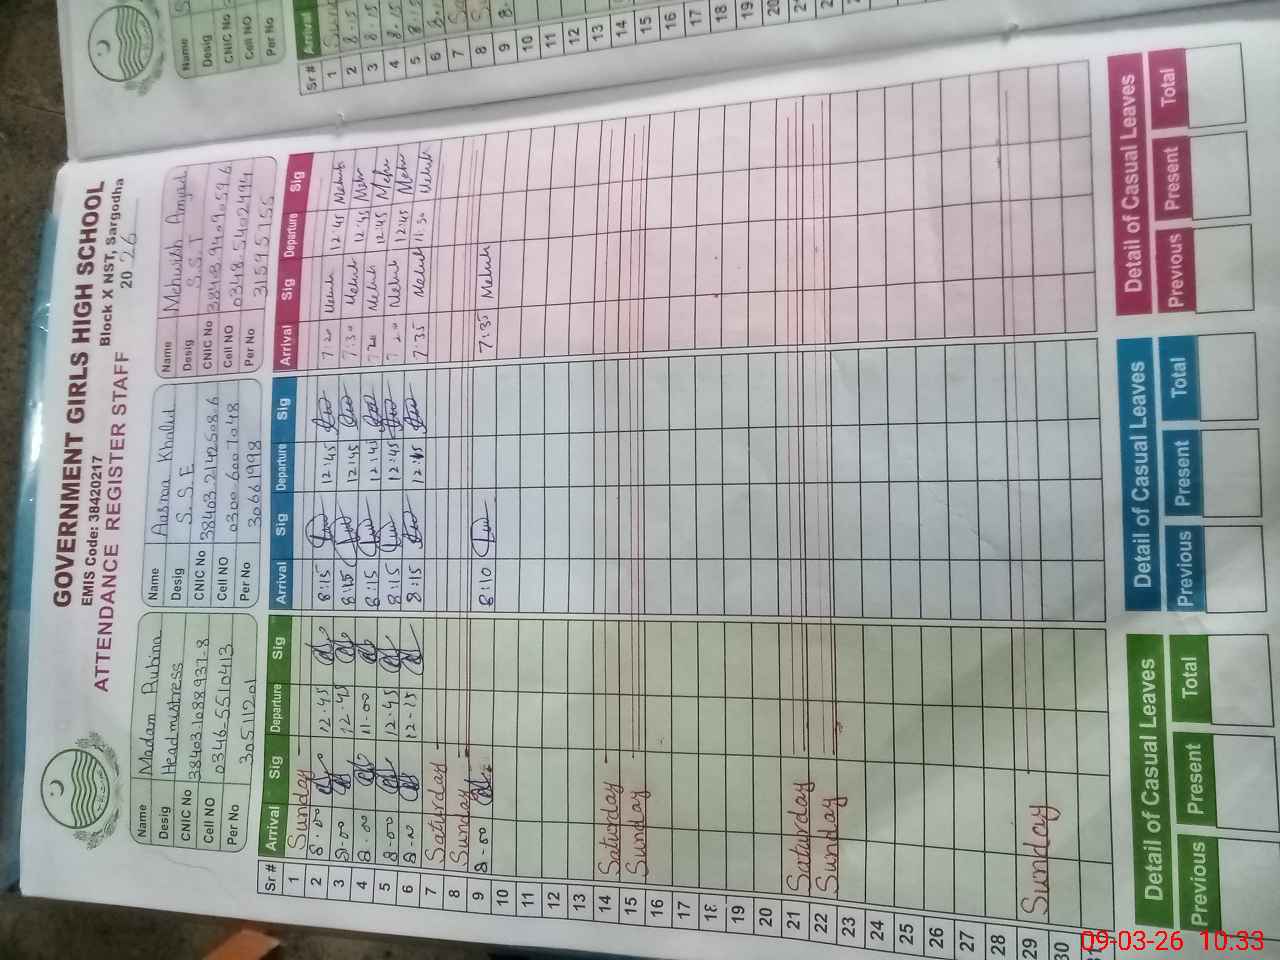 GOVERNMENT GIRLS HIGH SCHOOL
EMIS Code: 38420217 Block X NST, Sargodha
ATTENDANCE REGISTER STAFF 2026
Name Madam Rubina
Desig Headmistress
CNIC No 38403-1088937-8
Cell NO 0346-5510413
Per No 30511201
Name Khalid
Desig S.S.E
CNIC No 38403-2142508-6
Cell NO 0300-6007048
Per No 30661998
Name Mehwish Amjad
Desig S.S.T
CNIC No
Cell NO 0348-5402494
Per No 31595155
Sr # Arrival Sig Departure Sig Arrival Sig Departure Sig Arrival Sig Departure Sig
1 Sunday
2 8.00 12.45 8:15 12:45 7:20 Mehwish 12:45 Mehwish
3 8.00 12.45 8:15 12:45 7:30 Mehwish 12:45
4 8.00 11.00 8:15 12:45 7 20 Mehwish 12:45
5 8.00 12.45 8:15 12:45 7 20 Mehwish 12:45
6 8.00 12-15 8:15 12:45 7:35 Mehwish 11:30 Mehwish
7 Saturday
8 Sunday
9 8-00 8:10 7:35 Mehwish
10
11
12
13
14 Saturday
15 Sunday
16
17
18
19
20
21 Saturday
22 Sunday
23
24
25
26
27
28
29 Sunday
30
31
Detail of Casual Leaves
Previous Present Total
Detail of Casual Leaves
Previous Present Total
Detail of Casual Leaves
Previous Present Total
Name
Desig
CNIC No
Cell No
Per No
Sr # Arrival
1
2 8.15
3 8.15
4 8.15
5 8.15
6
7
8
9
10
11
12
13
14
15
16
17
18
19
20
09-03-26 10:33